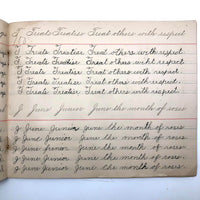 Treats Treatise Treat others with respect
T Treats Treatise Treat others with respect.
T Treats Treatise Treat others with respect.
T Treats Treatise Treat others with respect.
T Treats Treatise Treat others with respect.
T Treats Treatise Treat others with respect.
J June Junior June the month of roses
J June Junior June the month of roses
J June Junior June the month of roses
J June Junior June the month of roses
J June Junior June the month of roses
J June Junior June the month of roses